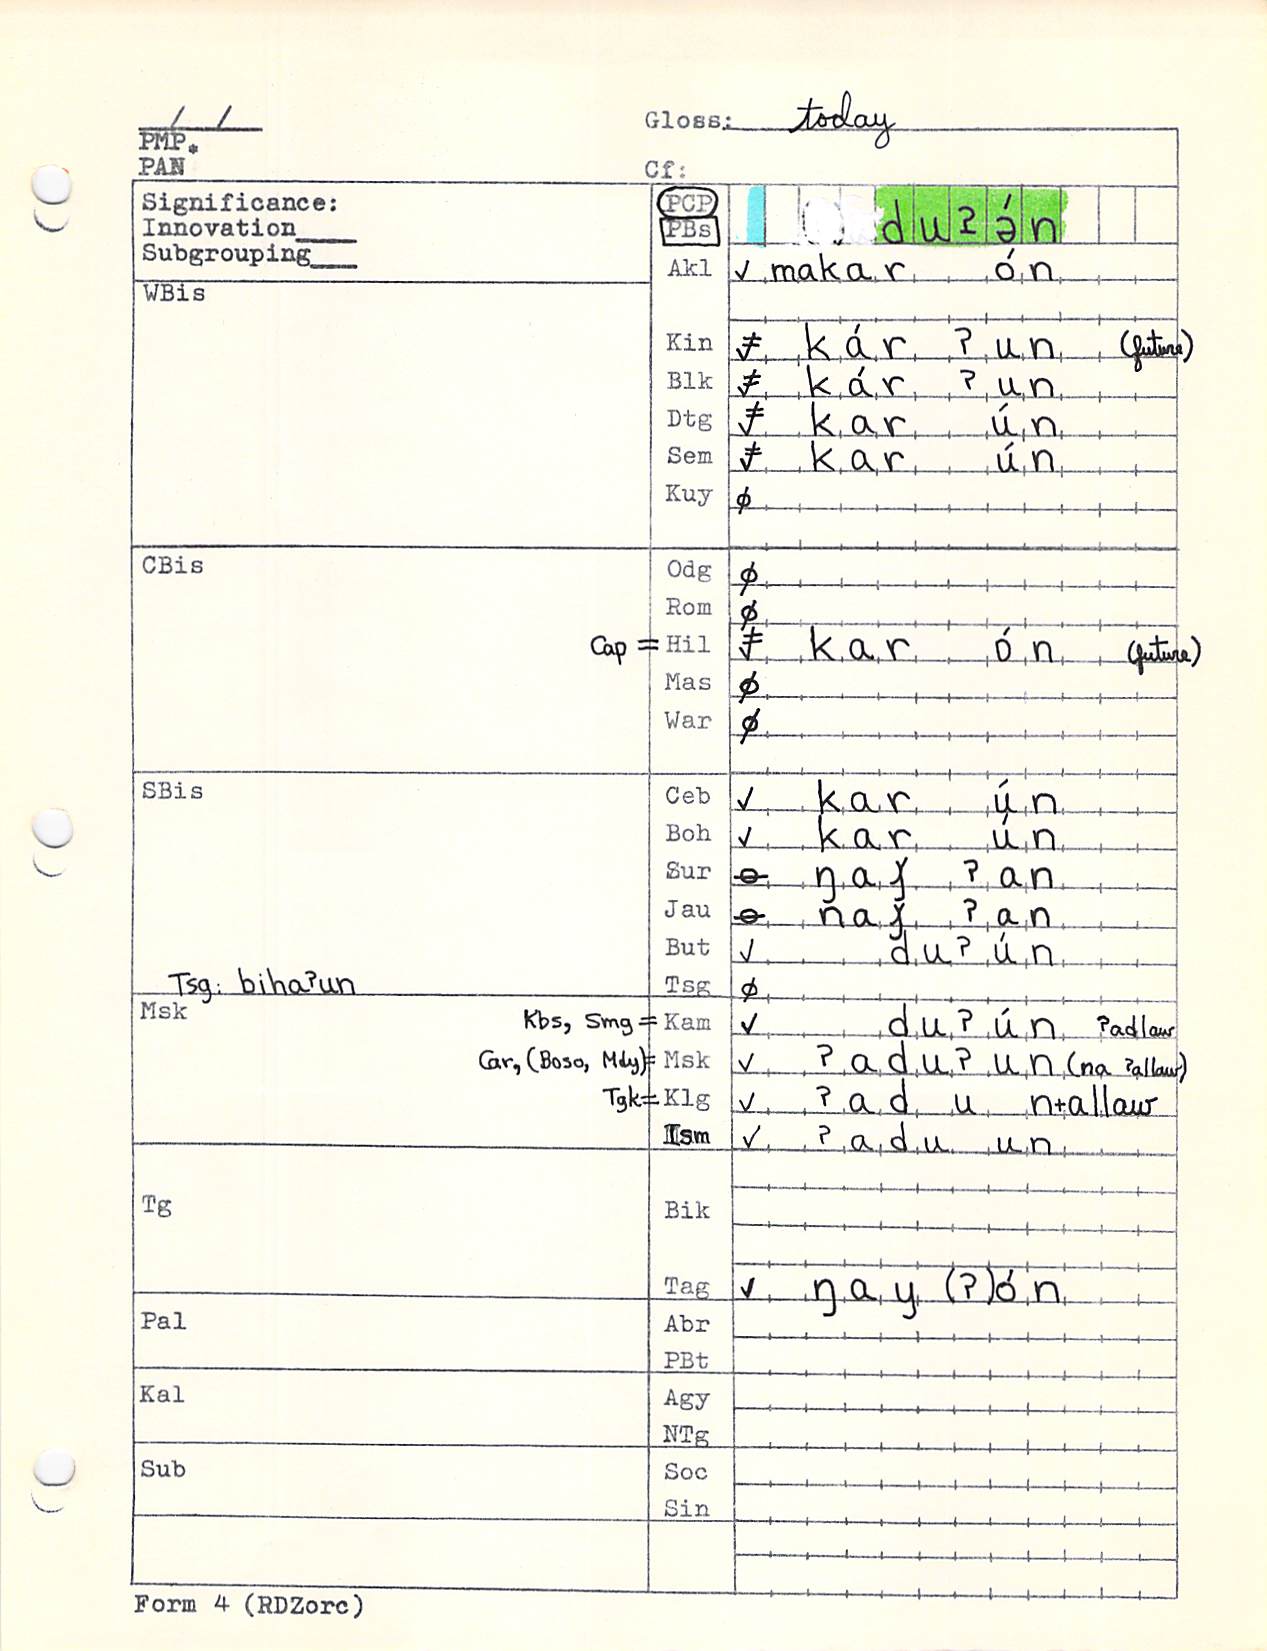 / /
Gloss: today
PMP.
PAN
Cf:
Significance:
Innovation____
Subgrouping____
PCP
PBs duʔə́n
Akl ✓ makar ón
WBis
Kin ≠ kár ʔun (future)
Blk ≠ kár ʔun
Dtg ≠ kar ún
Sem ≠ kar ún
Kuy ø
CBis
Odg ø
Rom ø
Cap = Hil ≠ kar ón (future)
Mas ø
War ø
SBis
Ceb ✓ kar ún
Boh ✓ kar ún
Sur ⊖ ŋaǰ ʔan
Jau ⊖ naǰ ʔan
But ✓ duʔún
Tsg: bihaʔun
Tsg ø
Msk
Kbs, Smg = Kam ✓ duʔún ʔadlaw
Car, (Boso, Mdy) = Msk ✓ ʔaduʔun (na ʔallaw)
Tgk = Klg ✓ ʔad u n+allaw
Ism ✓ ʔadu un
Tg
Bik
Tag ✓ ŋay (ʔ)ón
Pal
Abr
PBt
Kal
Agy
NTg
Sub
Soc
Sin
Form 4 (RDZorc)